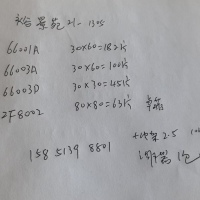 景苑 21-1305
66001A 30×60=182片
66003A 30×60=100片
66003D 30×30=45片
2F8002 80×80=63片
2.5
158 5139 8801